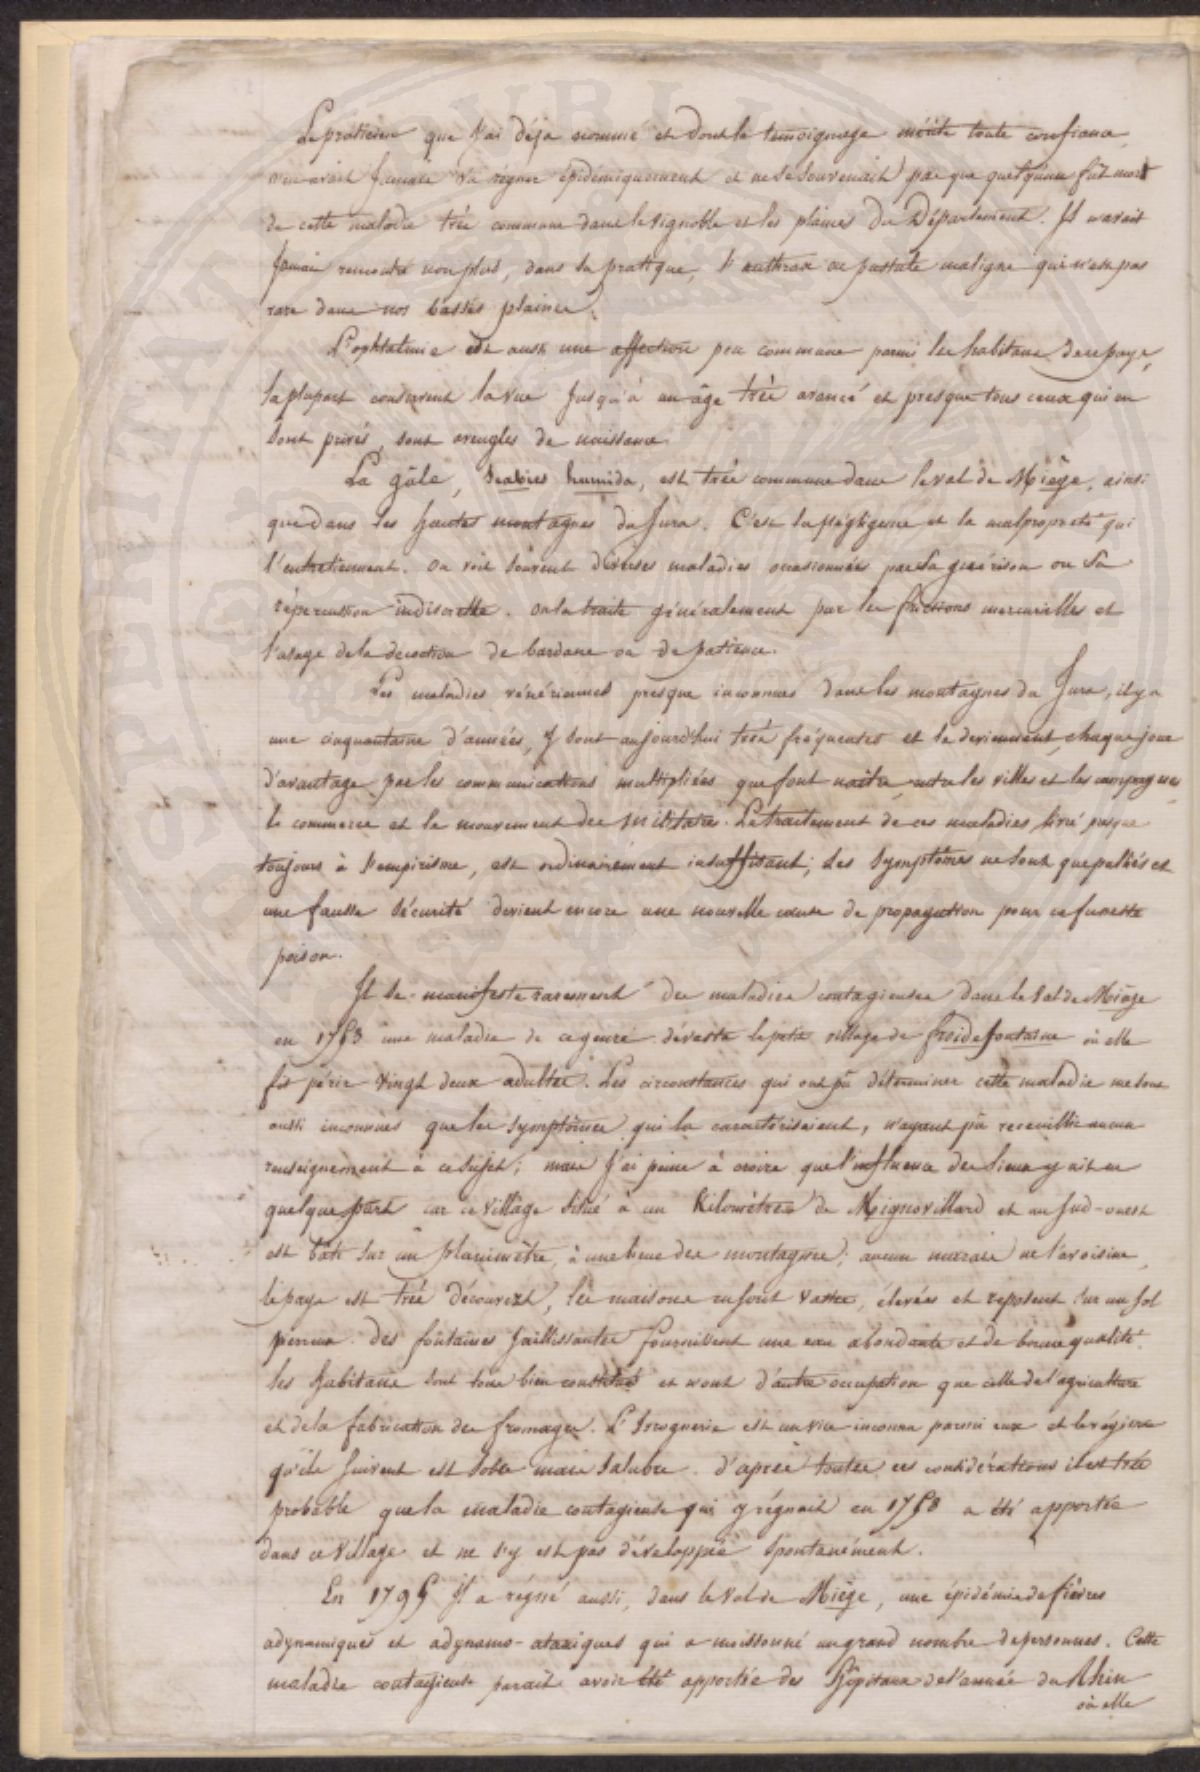 Le praticien que j'ai déja nommé et dont le temoignage mérite toute confiance
n'en avait jamais vu régner épidémiquement et ne se souvenait pas que quelqu'un fût mort
de cette maladie très commune dans le vignoble et les plaines du Département. Il n'avait
jamais rencontré non plus, dans sa pratique, l'anthrax ou pustule maligne qui n'est pas
rare dans nos basses plaines.
L'ophtalmie est aussi une affection peu commune parmi les habitans de ce pays,
la plupart conservent la vue jusqu'à un âge très avancé et presque tous ceux qui en
sont privés, sont aveugles de naissance.
La gâle, scabies humida, est très commune dans le val de Miège, ainsi
que dans les hautes montagnes du Jura. C'est la négligence et la malpropreté qui
l'entretiennent. On voit souvent diverses maladies occasionnées par sa guérison ou sa
répercution indiscrette. on la traite généralement par les frictions mercurielles et
l'usage de la decoction de bardane ou de patience.
Les maladies vénériennes presque inconnues dans les montagnes du Jura, il y a
une cinquantaine d'années, y sont aujourd'hui très fréquentes et le deviennent chaque jour
d'avantage par les communications multipliées que font naitre entre les villes et les campagnes
le commerce et le mouvement des militaires. Le traitement de ces maladies livré presque
toujours à l'empirisme, est ordinairement insuffisant; les symptômes ne sont que palliés et
une fausse sécurité devient encore une nouvelle cause de propagation pour ce funeste
poison.
Il se manifeste rarement des maladies contagieuses dans le val de Miège
en 1758 une maladie de ce genre dévasta le petit village de froidefontaine où elle
fit périr vingt deux adultes. Les circonstances qui ont pû déterminer cette maladie me sont
aussi inconnues que les symptômes qui la caractérisaient, n'ayant pû receuillir aucun
renseignement à ce sujet; mais j'ai peine à croire que l'influence des lieux y ait eu
quelque part car ce village situé à un kilomètre de Mignovillard et au sud-ouest
est bâti sur un planimètre, à une lieue des montagnes; aucun marais ne l'avoisine,
le pays est très découvert, les maisons en sont vastes, élevées et reposent sur un sol
pierreux. des fontaines jaillissantes fournissent une eau abondante et de bonne qualité.
les habitans sont tous bien constitués et n'ont d'autre occupation que celle de l'agriculture
et de la fabrication des fromages. L'ivrognerie est un vice inconnu parmi eux et le régime
qu'ils suivent est sobre mais salubre. d'après toutes ces considérations il est très
probable que la maladie contagieuse qui y régnait en 1758 a été apportée
dans ce village et ne s'y est pas développée spontanément.
En 1795 Il a régné aussi, dans le Val de Miège, une épidémie de fièvres
adynamiques et adynamo-ataxiques qui a moissonné un grand nombre de personnes. Cette
maladie contagieuse parait avoir été apportée des hôpitaux de l'armée du Rhin
où elle